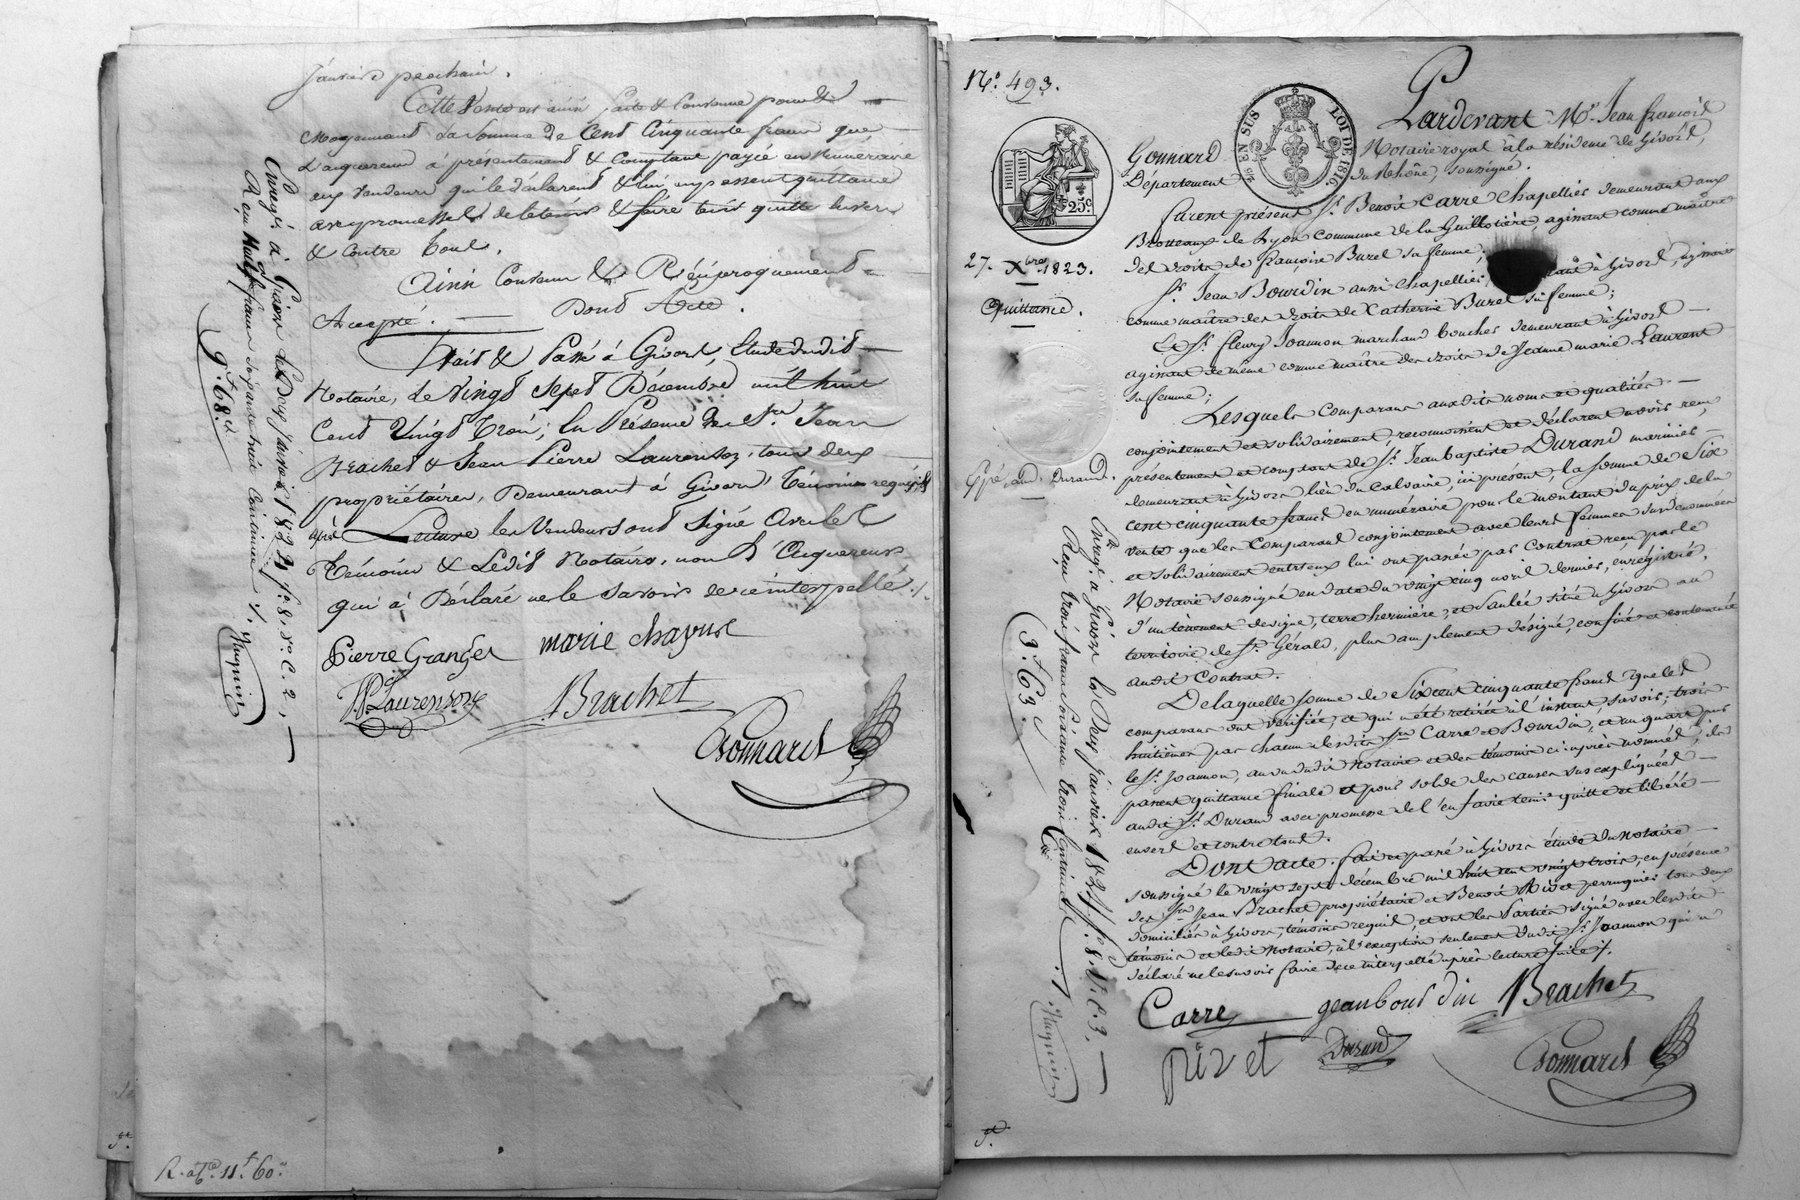 Janvier prochain.
Cette vente est ainsi faite & convenue pour &
Moyennant la somme de Cent Cinquante francs que
l'acquereur à présentement & Comptant payée en Numéraire
aux Vendeurs qui le déclarent & lui en passent quittance
avec promesse de le tenir & faire tenir quitte envers
& Contre tous.
Ainsi Convenu & Réciproquement
Accepté. Dont Acte.
Fait & Passé à Givors, Etude dudit
Notaire, le Vingt Sept Décembre mil huit
Cent Vingt Trois; En Présence des Srs Jean
Brachet & Jean Pierre Laurenson, tous deux
propriétaires, Demeurant à Givors Témoins requis, &
après Lecture les Vendeurs ont Signé Avec les
Témoins & Ledit Notaire, non l'Acquereur
qui a Déclaré ne le Savoir de ce interpellé ./.
Pierre Granger marie chavut
JP Laurenson Brachet
Gonnard
Enregé à Givors le Deux Janvier 1824 fo. 8. Ro. C. 2,
Reçu Neuf francs soixante huit Centimes ./.
9f 68c
R. à 6c. 11f 60c
No. 493.
25c
EN SUS LOI DE 1816.
27. Xbre 1823.
Quittance.
Expé. aud. Durand.
Pardevant Me. Jean françois
Gonnard Notaire royal à la résidence de Givors,
Département du Rhône, soussigné.
furent présent Sr. Benoit Carre Chapellier demeurant aux
Brotteaux de Lyon Commune de la Guillotière, agissant comme maître
des droits de françoise Burel sa femme;
Sr. Jean Bourdin aussi Chapellier, à Givors, agissant
comme maître des droits de Catherine Burel sa femme;
Et Sr. fleury Joannon marchand boucher demeurant à Givors
agissant de même comme maître des droits de Jeanne marie Laurant
sa femme;
Lesquels Comparans auxdits noms et qualités
conjointement et solidairement, reconnoissent et déclarent avoir reçu
présentement et comptant de Sr. Jean baptiste Durand marinier
demeurant à Givors lieu du Calvaire, ici présent, la somme de Six
cent cinquante francs en numéraire pour le montant du prix de la
vente que les Comparans conjointement avec leurs femmes susdénommées
et solidairement entr'eux lui ont passée par Contrat reçu par le
Notaire soussigné en date du vingt cinq avril dernier, enregistré,
d'un tenement de vigne, terre hermière, et Saulée situé à Givors au
territoire de St. Gérald, plus amplement désigné, confiné et contenancé
audit Contrat.
De laquelle somme de Six cent cinquante francs que les
comparans ont vérifiée, et qui a été retirée à l'instant savoir; trois
huitièmes par chacun desdits Srs Carre et Bourdin, et un quart par
le Sr. Joannon, au vu dudit Notaire et des témoins ci après nommés, ils
passent quittance finale et pour solde des causes sus expliquées
audit Sr. Durand avec promesse de l'en faire tenir quitte et libéré
envers et contre tous.
Dont acte, fait et passé à Givors étude du Notaire
soussigné le vingt sept décembre mil huit cent vingt trois, en présence
des Srs Jean Brachet propriétaire et Benoit Rivet perruquier tous deux
domiciliés à Givors, témoins requis, et ont les Parties signé avec lesdits
témoins et ledit Notaire, à l'exception seulement dudit Sr. Joannon qui a
déclaré ne le savoir faire de ce interpellé après lecture faite ./.
Carre jean bourdin Brachet
Rivet Durand Gonnard
Enregé à Givors le Deux janvier 1824 fo. 8. Vo. C. 3,
Reçu trois francs soixante trois Centimes ./.
3f 63c